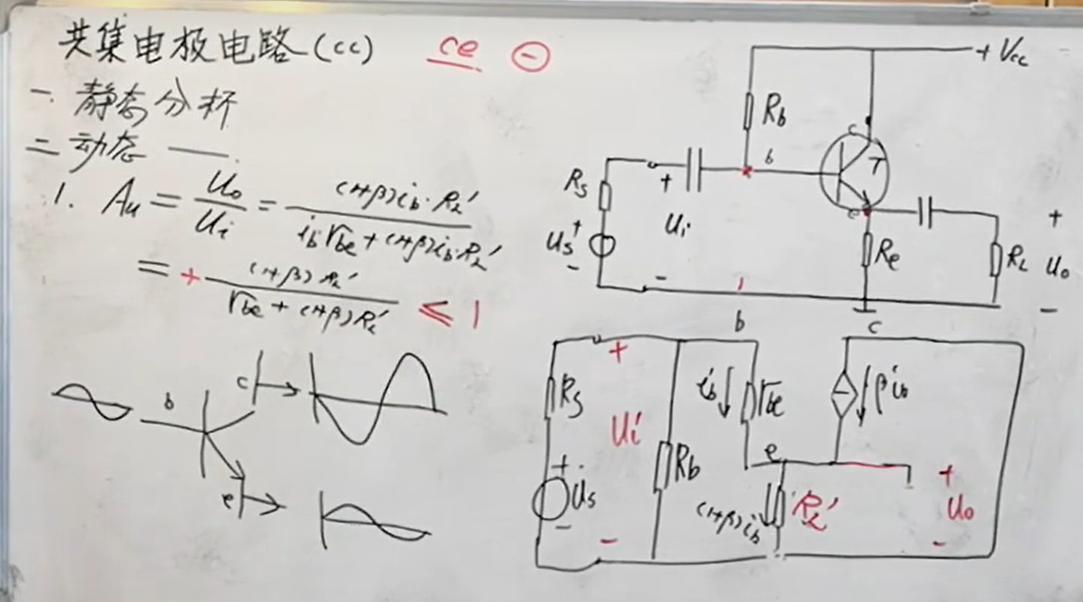 共集电极电路(cc) ce ⊖
一. 静态分析
二 动态 ——.
1. Au = Uo/Ui = (1+β)ib·RL'/(ib rbe + (1+β)ib·RL')
= + (1+β)RL'/(rbe + (1+β)RL') ≤ 1
+Vcc
Rb
c
b
T
e
Rs
+
Ui
Us
+
-
-
Re
RL
+
Uo
-
b
c
+
Rs
ib
rbe
βib
Ui
Rb
e
+
Us
-
(1+β)ib
RL'
+
Uo
-
-
b
c
e